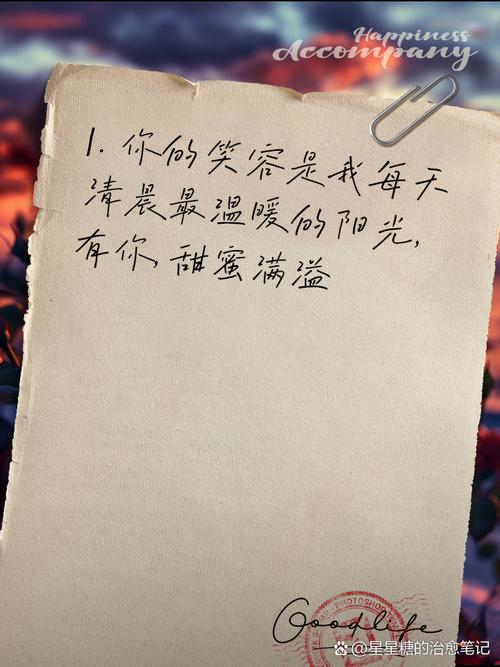 Happiness
Accompany
1. 你的笑容是我每天
清晨最温暖的阳光,
有你,甜蜜满溢
PHOTOSHOP
Goodlife
@星星糖的治愈笔记